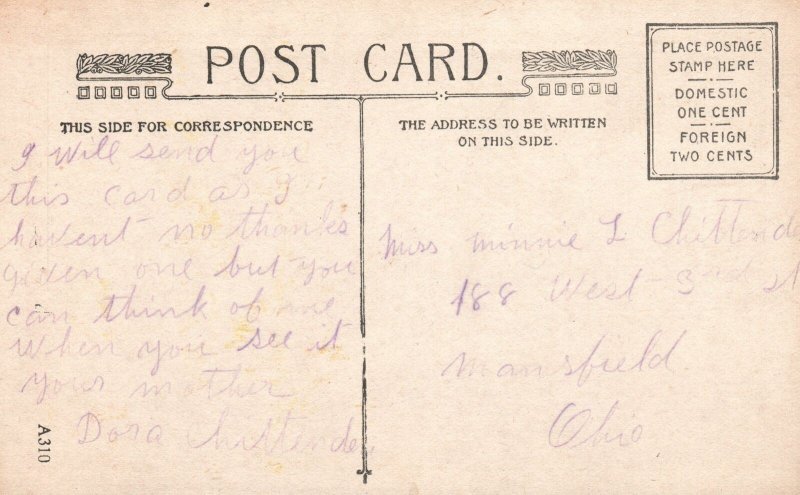 POST CARD.
PLACE POSTAGE
STAMP HERE
DOMESTIC
ONE CENT
FOREIGN
TWO CENTS
THIS SIDE FOR CORRESPONDENCE
THE ADDRESS TO BE WRITTEN
ON THIS SIDE.
I will send you
this card as I
havent no thanks
given one but you
can think of me
when you see it
your mother
Dora Chittenden
Miss Minnie L Chittende
188 West 3rd st
Mansfield
Ohio
A310